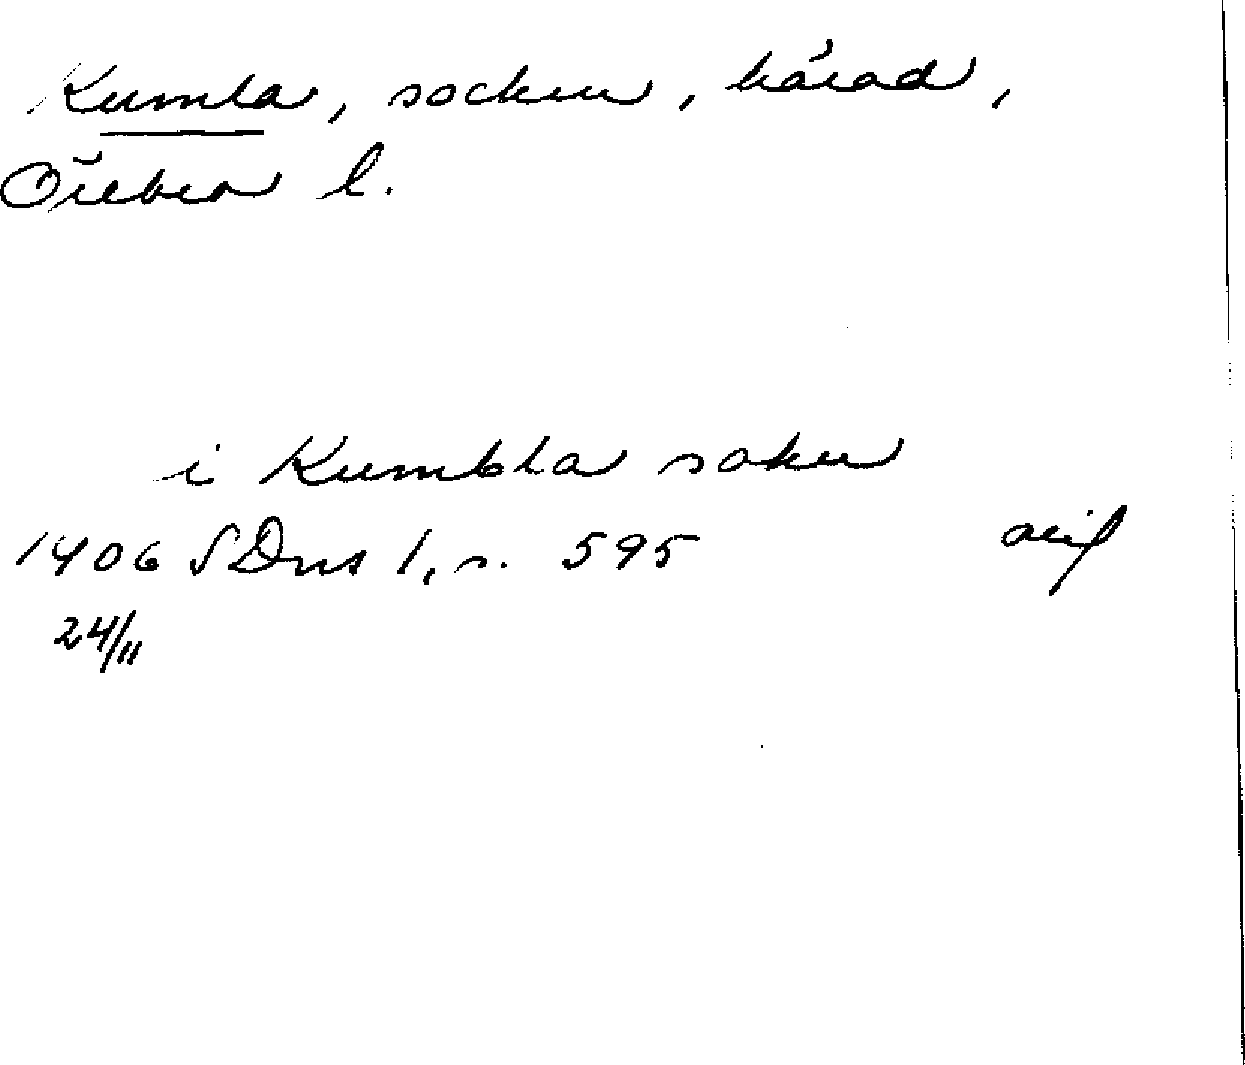 Kumla, socken, härad,
Örebro l.
i Kumbla sokn
1406 SDns 1, s. 595
24/11